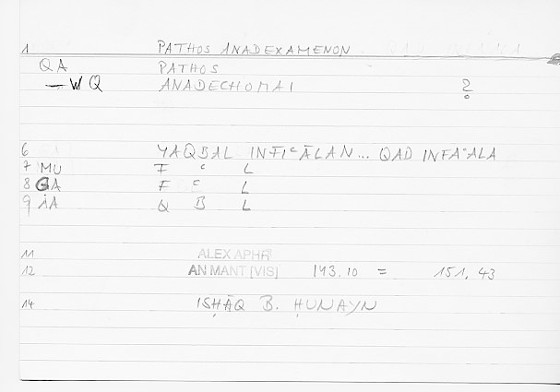 1 PATHOS ANADEXAMENON
QA PATHOS
—WQ ANADECHOMAI ?
6 YAQBAL INFIᶜĀLAN... QAD INFAᶜALA
7 MU F ᶜ L
8 GA F ᶜ L
9 AA Q B L
11 ALEX APHR
12 AN MANT [VIS] 193.10 = 151, 43
14 ISḤĀQ B. ḤUNAYN